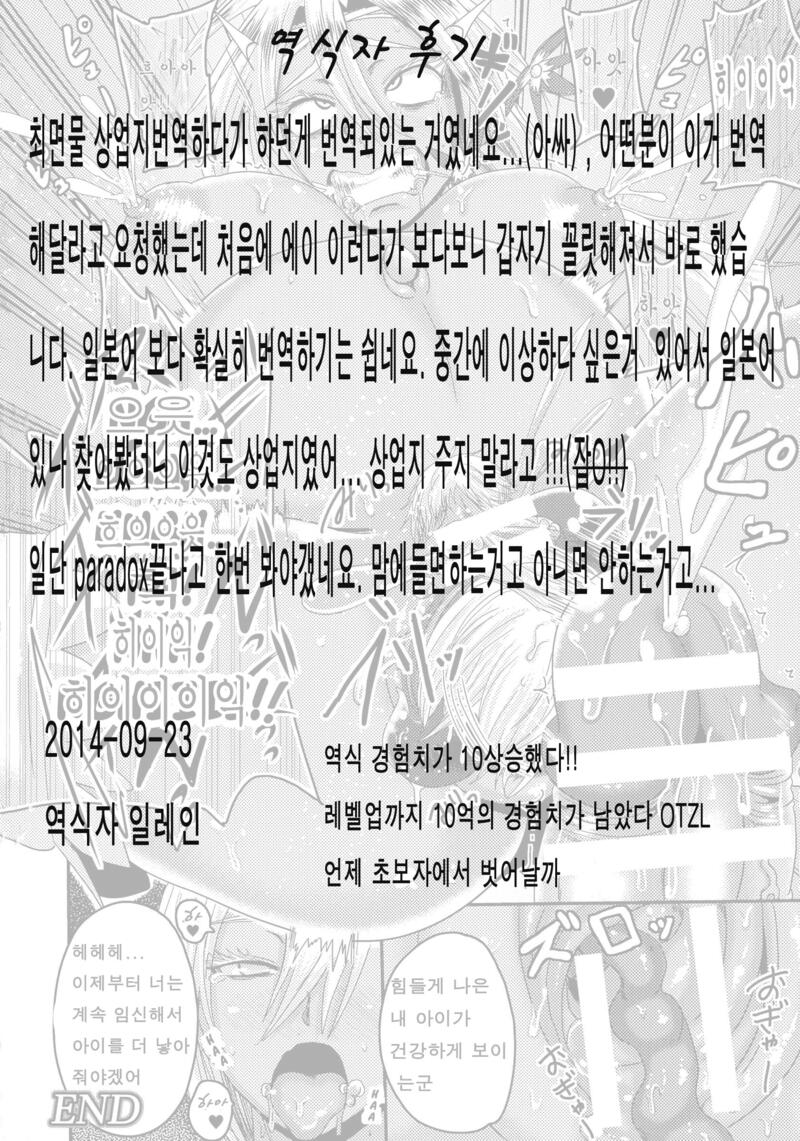 역식자 후기
흐아아
아앗
히이이익
최면물 상업지번역하다가 하던게 번역되있는 거였네요...(아싸) , 어떤분이 이거 번역
해달라고 요청했는데 처음에 에이 이러다가 보다보니 갑자기 꼴릿해져서 바로 했습
니다. 일본어 보다 확실히 번역하기는 쉽네요. 중간에 이상하다 싶은거 있어서 일본어
있나 찾아봤더니 이것도 상업지였어... 상업지 주지 말라고 !!!(잡아!!)
일단 paradox끝나고 한번 봐야갰네요. 맘에들면하는거고 아니면 안하는거고...
히이익!
히이이이익!!
2014-09-23
역식자 일레인
역식 경험치가 10상승했다!!
레벨업까지 10억의 경험치가 남았다 OTZL
언제 초보자에서 벗어날까
헤헤헤...
이제부터 너는
계속 임신해서
아이를 더 낳아
줘야겠어
하
HAA
하아
HAA
힘들게 나은
내 아이가
건강하게 보이
는군
END